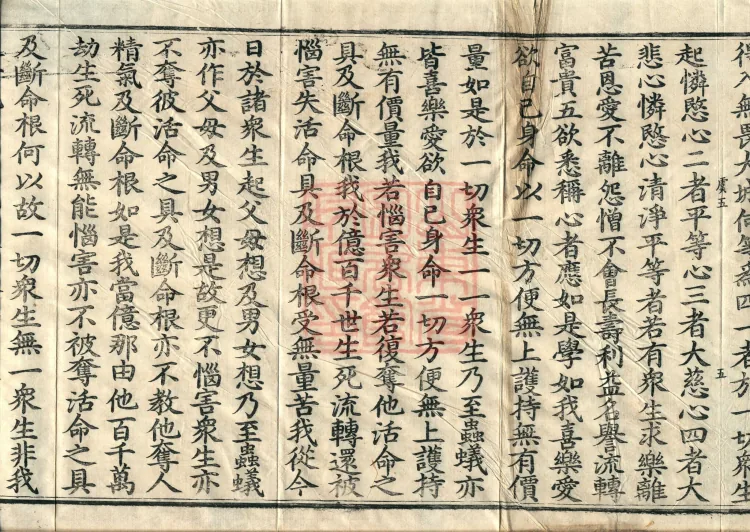 得入無畏大城何等爲四一者於一切衆生
虞五
五
起憐愍心二者平等心三者大慈心四者大
悲心憐愍心清淨平等者若有衆生求樂離
苦恩愛不離怨憎不會長壽利益名譽流轉
富貴五欲悉稱心者應如是學如我喜樂愛
欲自己身命以一切方便無上護持無有價
量如是於一切衆生一一衆生乃至蟲蟻亦
皆喜樂愛欲自己身命一切方便無上護持
無有價量我若惱害衆生若復奪他活命之
具及斷命根我於億百千世生死流轉還被
惱害失活命具及斷命根受無量苦我從今
日於諸衆生起父母想及男女想乃至蟲蟻
亦作父母及男女想是故更不惱害衆生亦
不奪彼活命之具及斷命根亦不教他奪人
精氣及斷命根如是我當億那由他百千萬
劫生死流轉無能惱害亦不被奪活命之具
及斷命根何以故一切衆生無一衆生非我